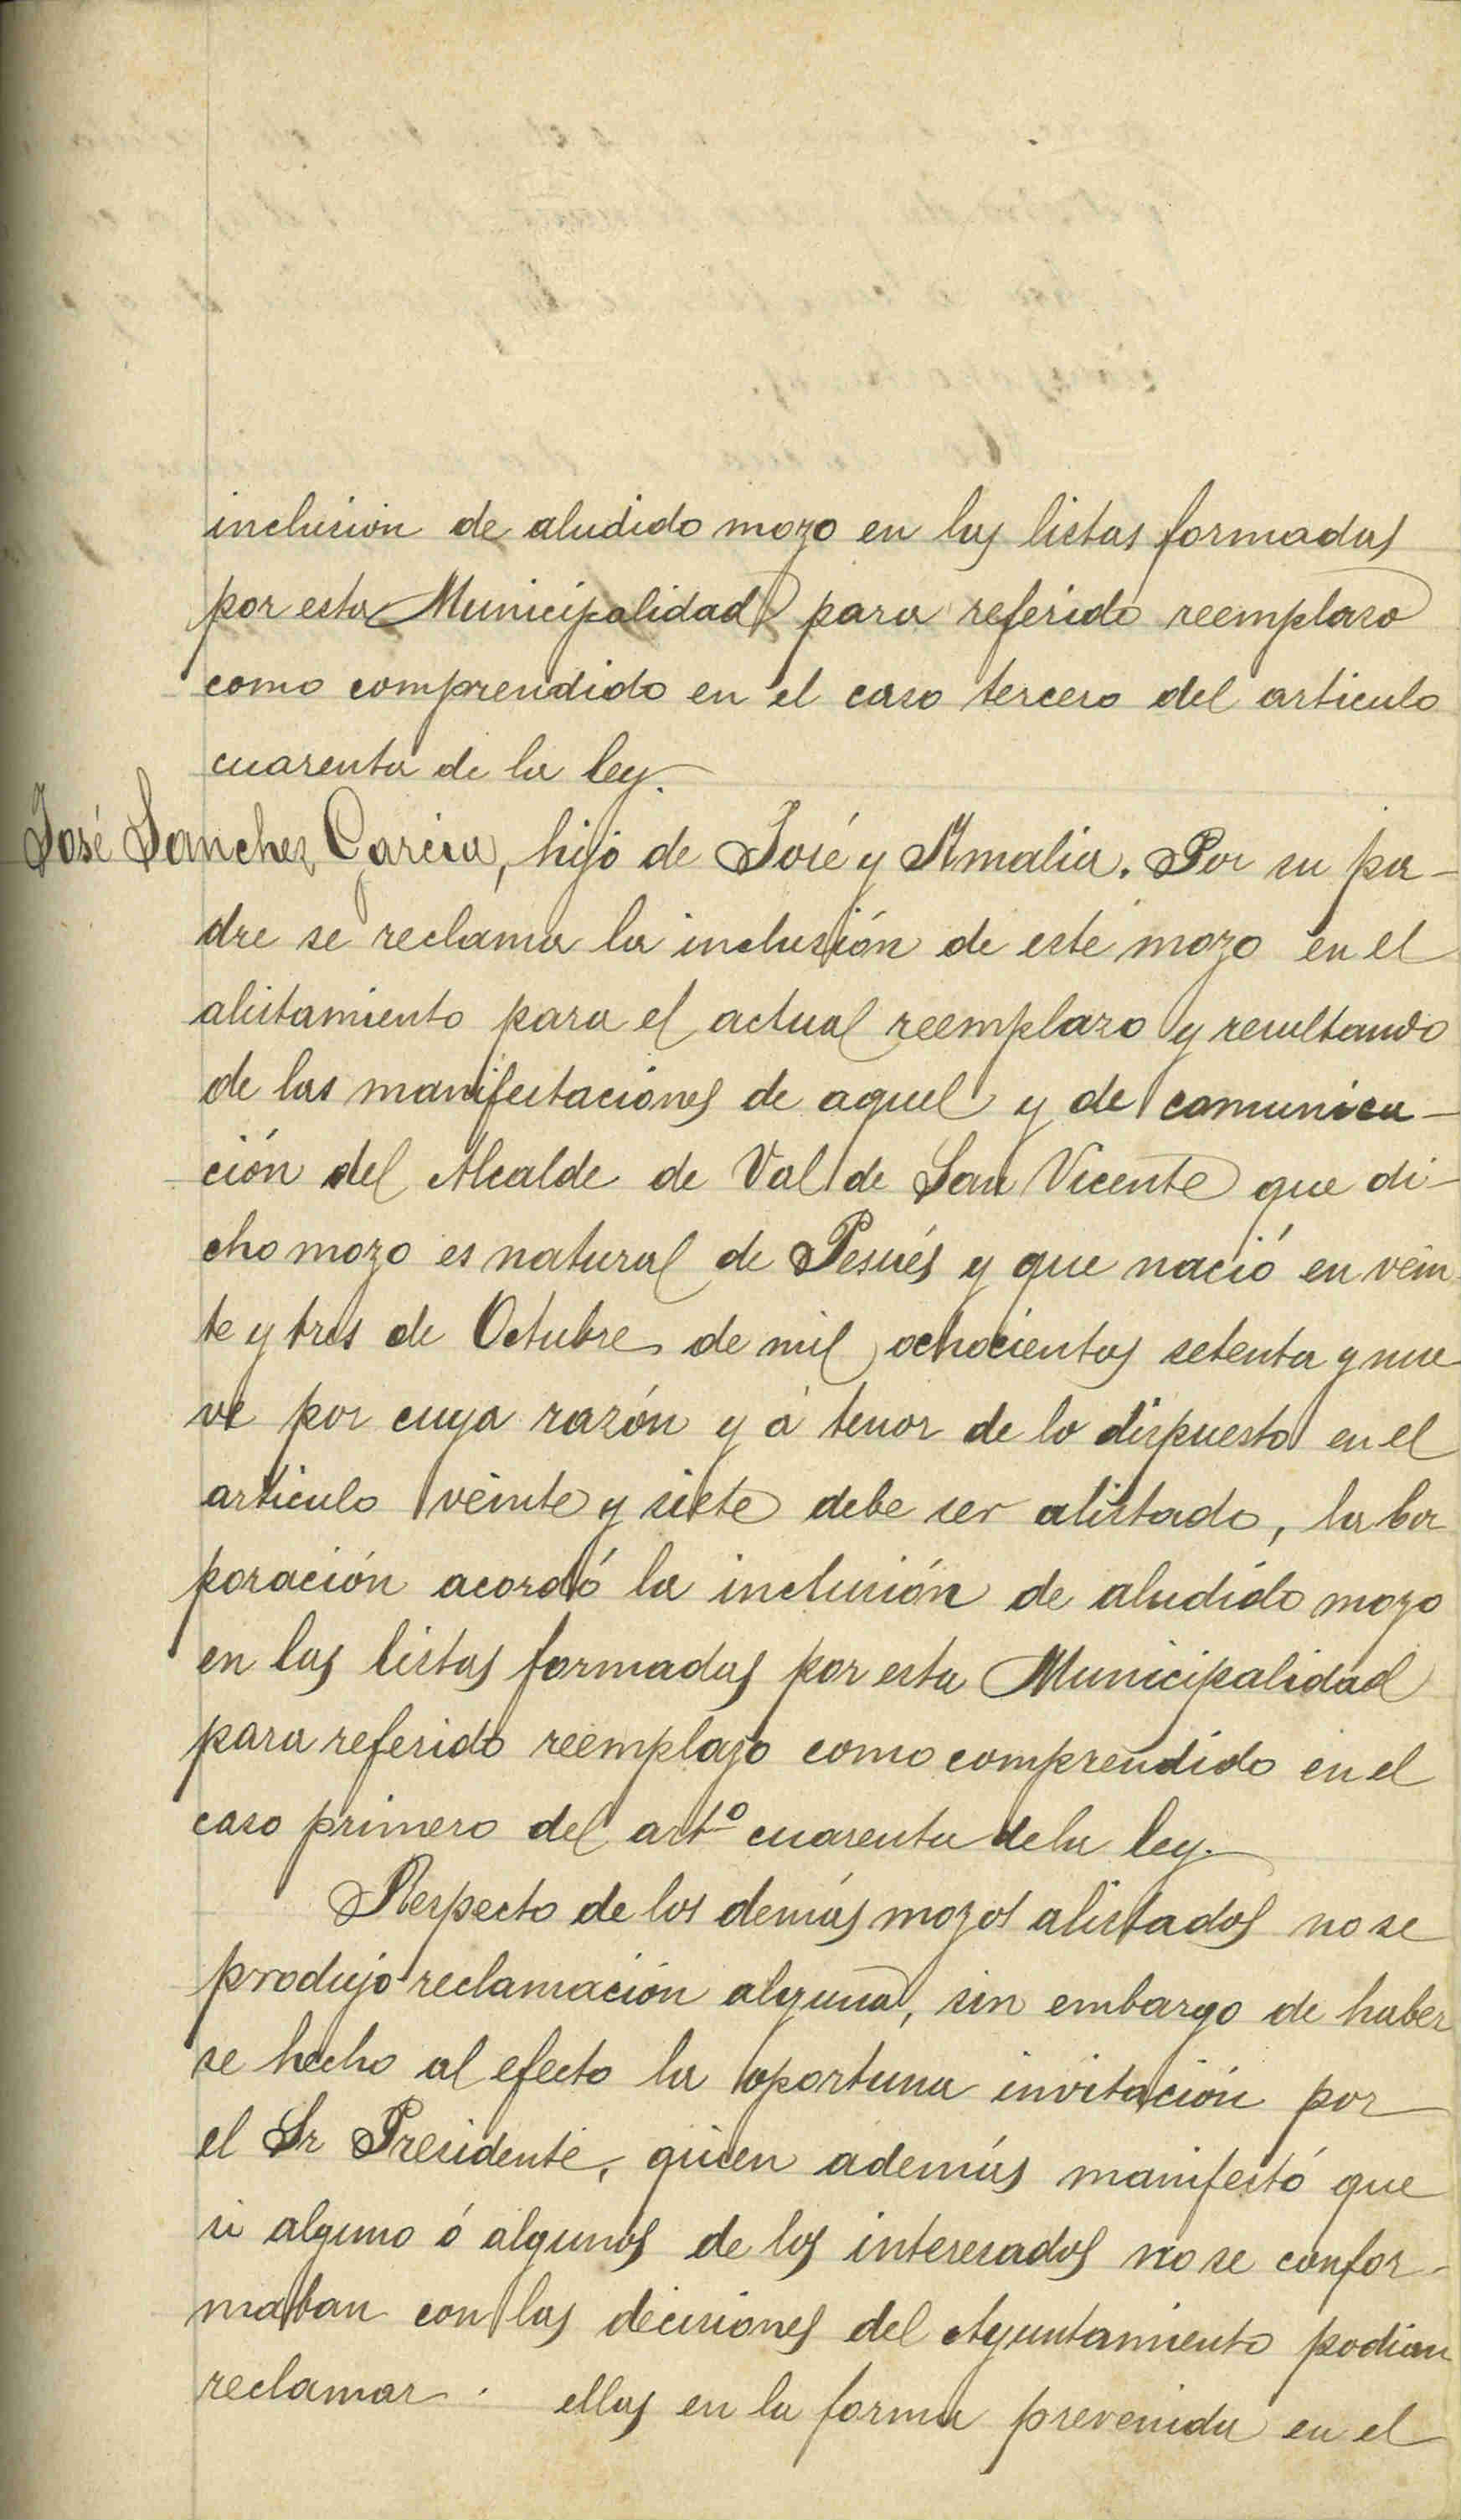 inclusión de aludido mozo en las listas formadas
por esta Municipalidad para referido reemplazo
como comprendido en el caso tercero del articulo
cuarenta de la ley.
José Sanchez Garcia, hijo de José y Amalia. Por su pa-
dre se reclama la inclusión de este mozo en el
alistamiento para el actual reemplazo y resultando
de las manifestaciones de aquel y de comunica-
ción del Alcalde de Val de San Vicente que di-
cho mozo es natural de Pesués y que nació en vein
te y tres de Octubre de mil ochocientos setenta y nue
ve por cuya razón y á tenor de lo dispuesto en el
articulo veinte y siete debe ser alistado, la Cor
poración acordó la inclusión de aludido mozo
en las listas formadas por esta Municipalidad
para referido reemplazo como comprendido en el
caso primero del artº cuarenta de la ley.
Respecto de los demás mozos alistados no se
produjo reclamación alguna, sin embargo de haber
se hecho al efecto la oportuna invitación por
el Sr Presidente, quien además manifestó que
si alguno ó algunos de los interesados no se confor-
maban con las decisiones del Ayuntamiento podian
reclamar ellas en la forma prevenida en el